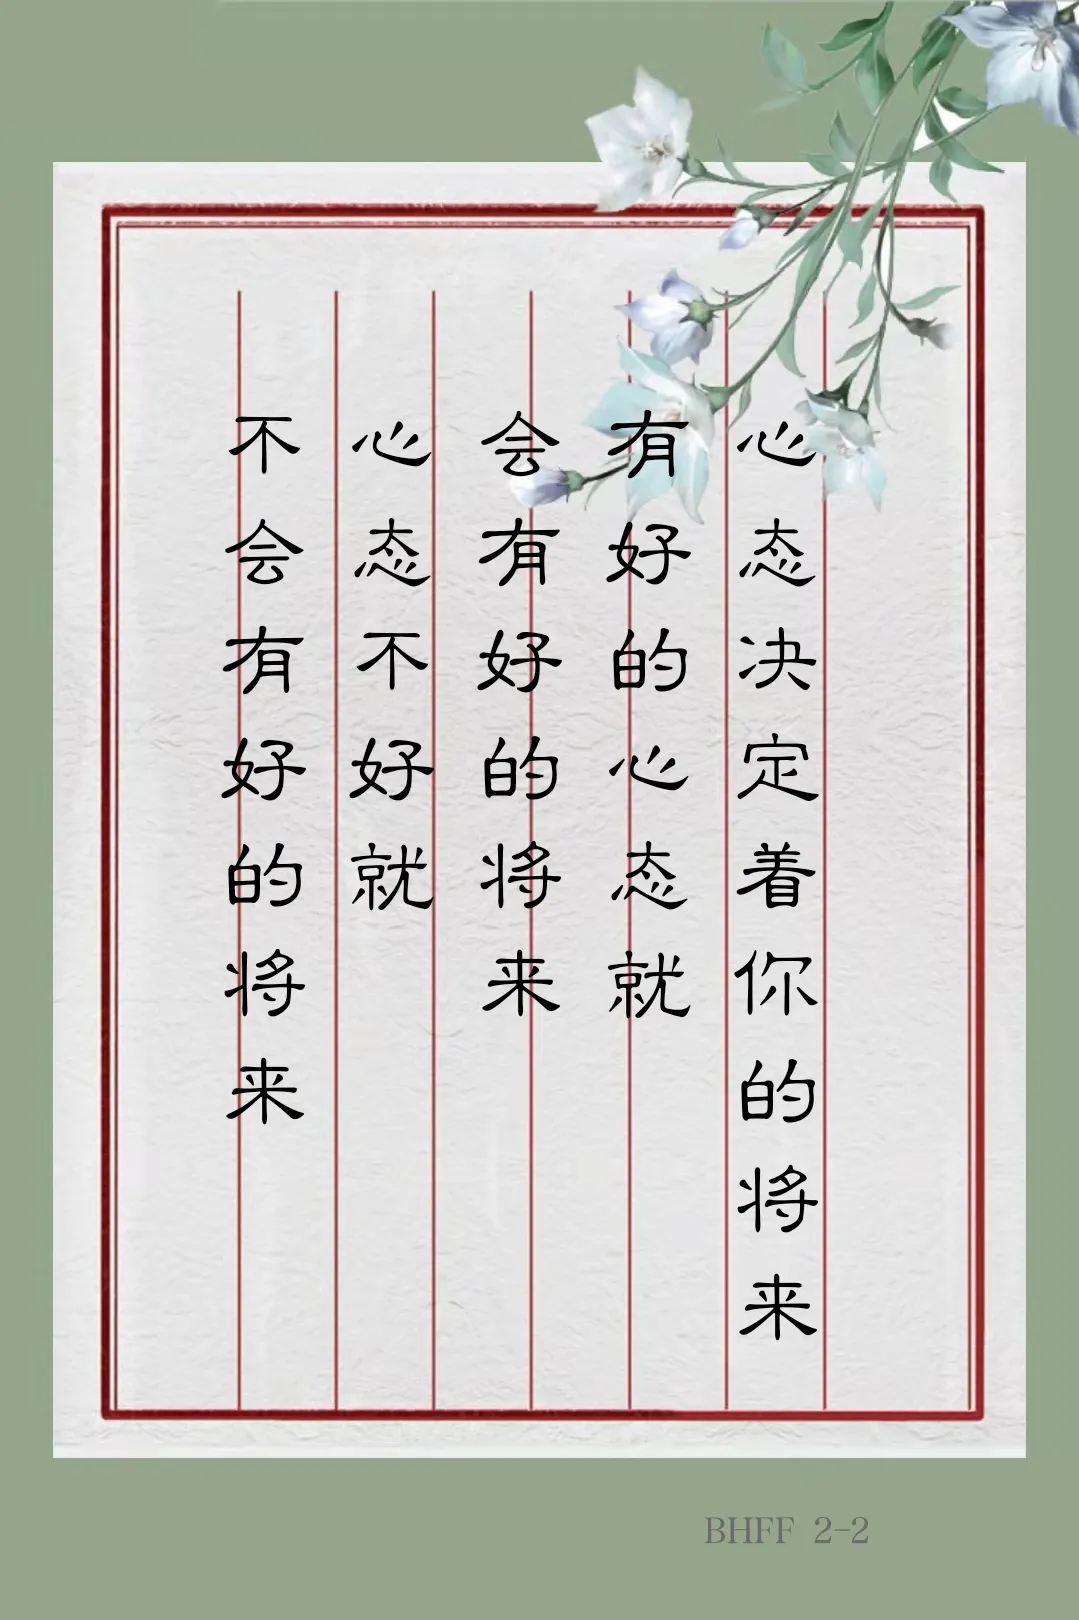 心态决定着你的将来
有好的心态就
会有好的将来
心态不好就
不会有好的将来
BHFF 2-2